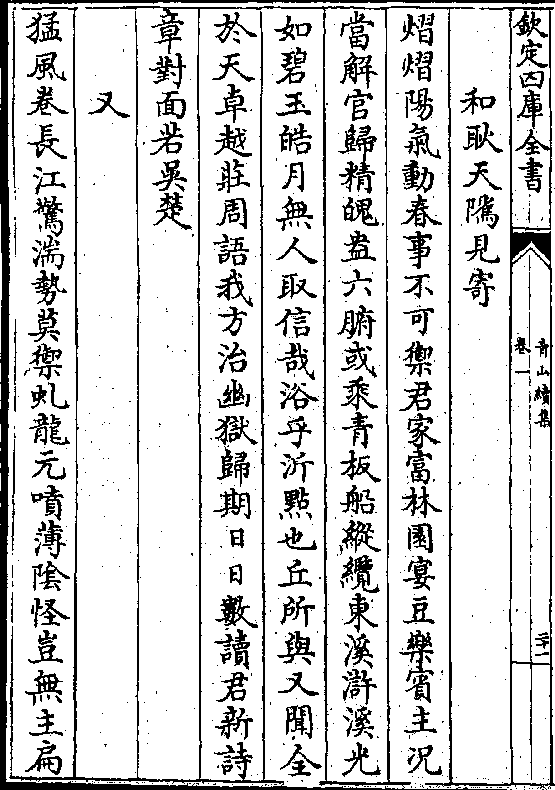 欽定四庫全書
青山續集
卷一
二十一
和耿天隲見寄
熠熠陽氣動春事不可禦君家富林園宴豆樂賓主况
當解官歸精魄盎六腑或乘青板船縱纜東溪滸溪光
如碧玉皓月無人取信哉浴乎沂點也丘所與又聞全
於天卓越莊周語我方治幽獄歸期日日數讀君新詩
章對面若吳楚
又
猛風卷長江驚湍勢莫禦虬龍元噴薄陰怪豈無主扁